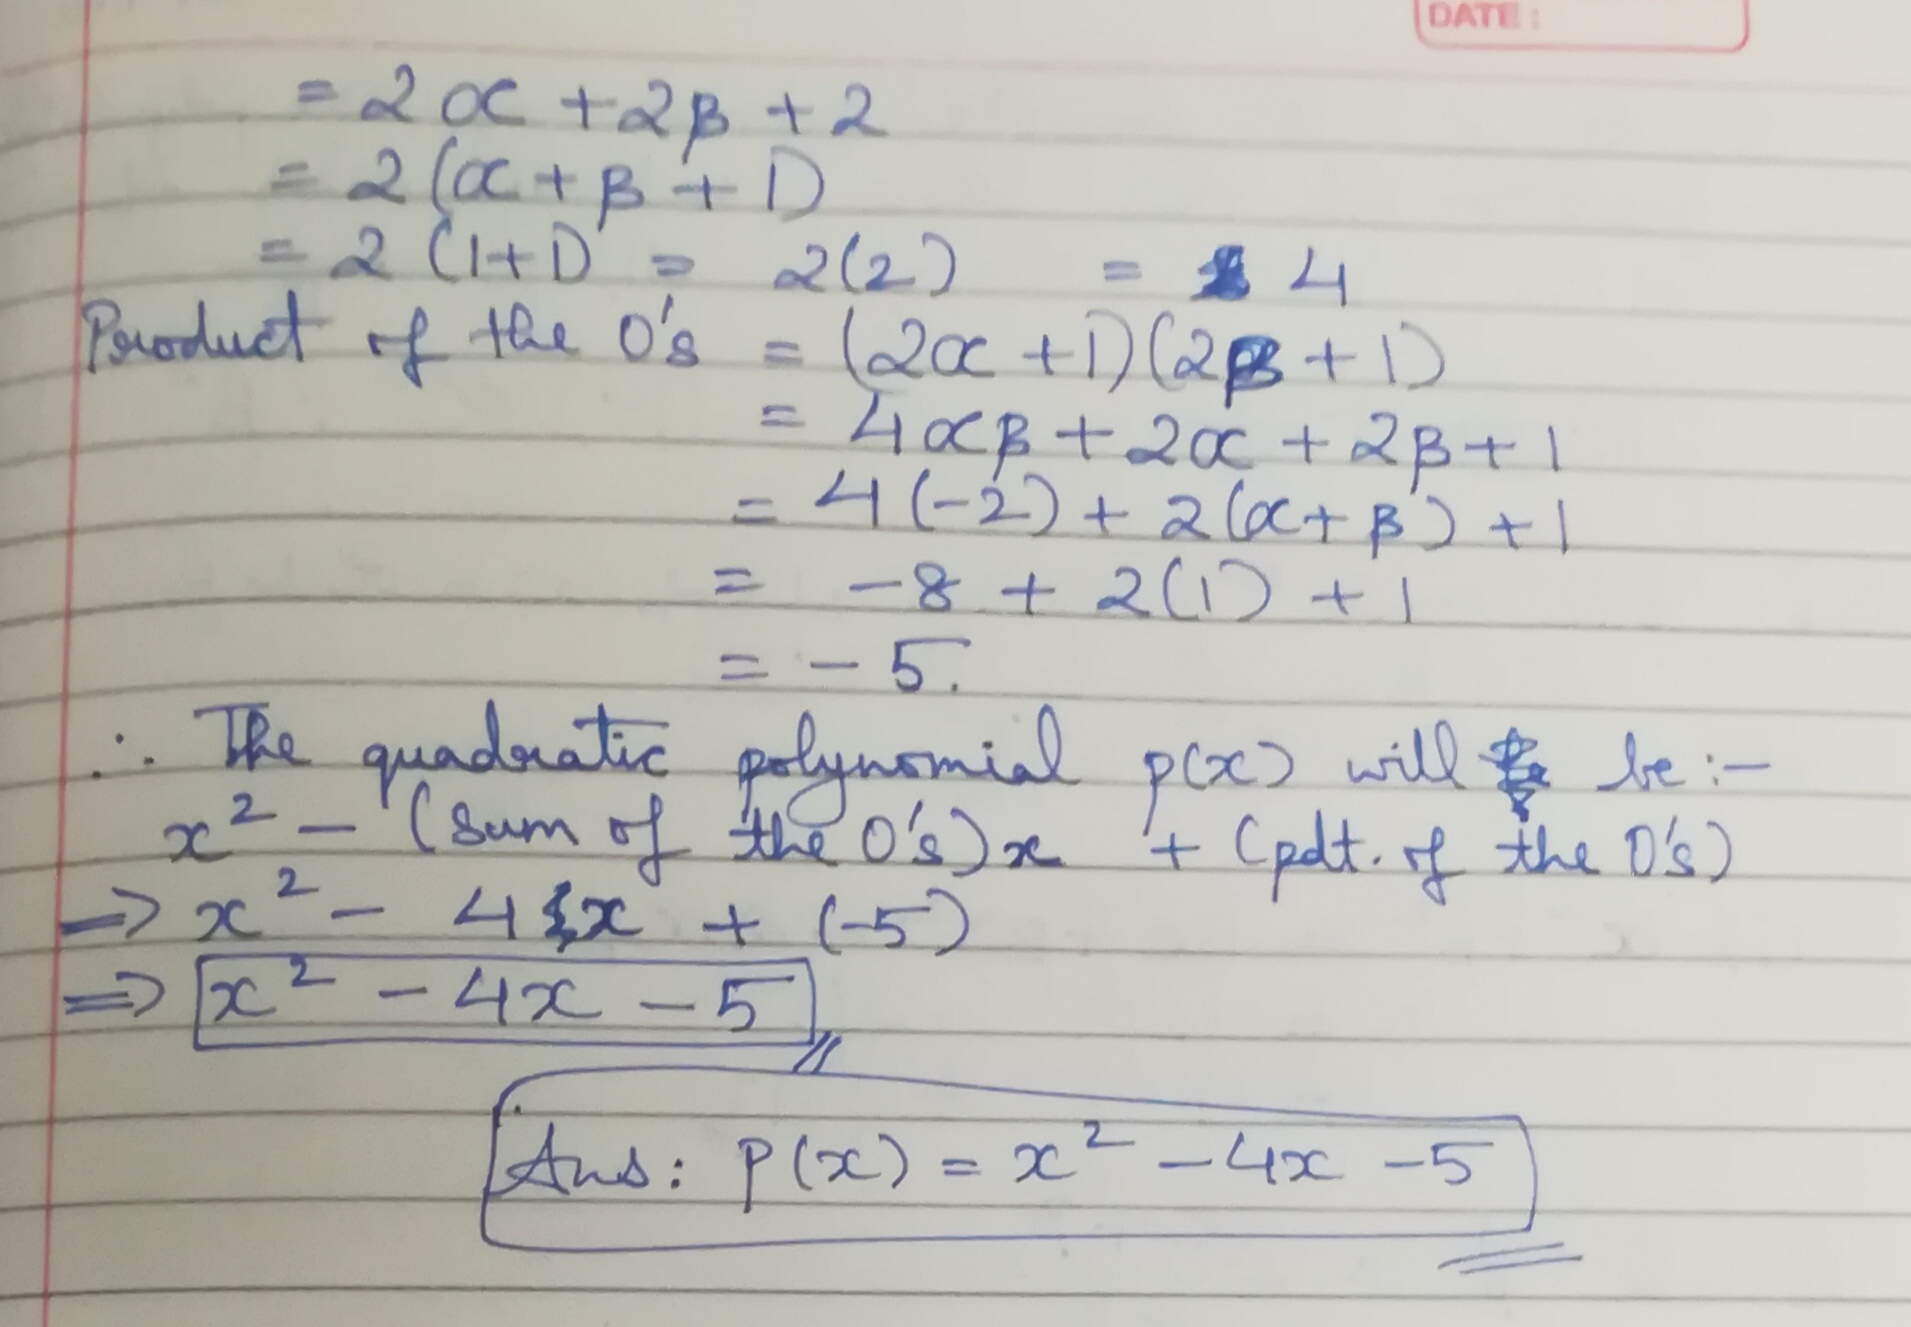 DATE:
= 2α + 2β + 2
= 2(α + β + 1)
= 2(1+1) = 2(2) = 4
Product of the 0's = (2α + 1)(2β + 1)
= 4αβ + 2α + 2β + 1
= 4(-2) + 2(α + β) + 1
= -8 + 2(1) + 1
= -5.
∴ The quadratic polynomial p(x) will be :-
x² - (sum of the 0's)x + (pdt. of the 0's)
⇒ x² - 4x + (-5)
⇒ x² - 4x - 5
Ans: P(x) = x² - 4x - 5